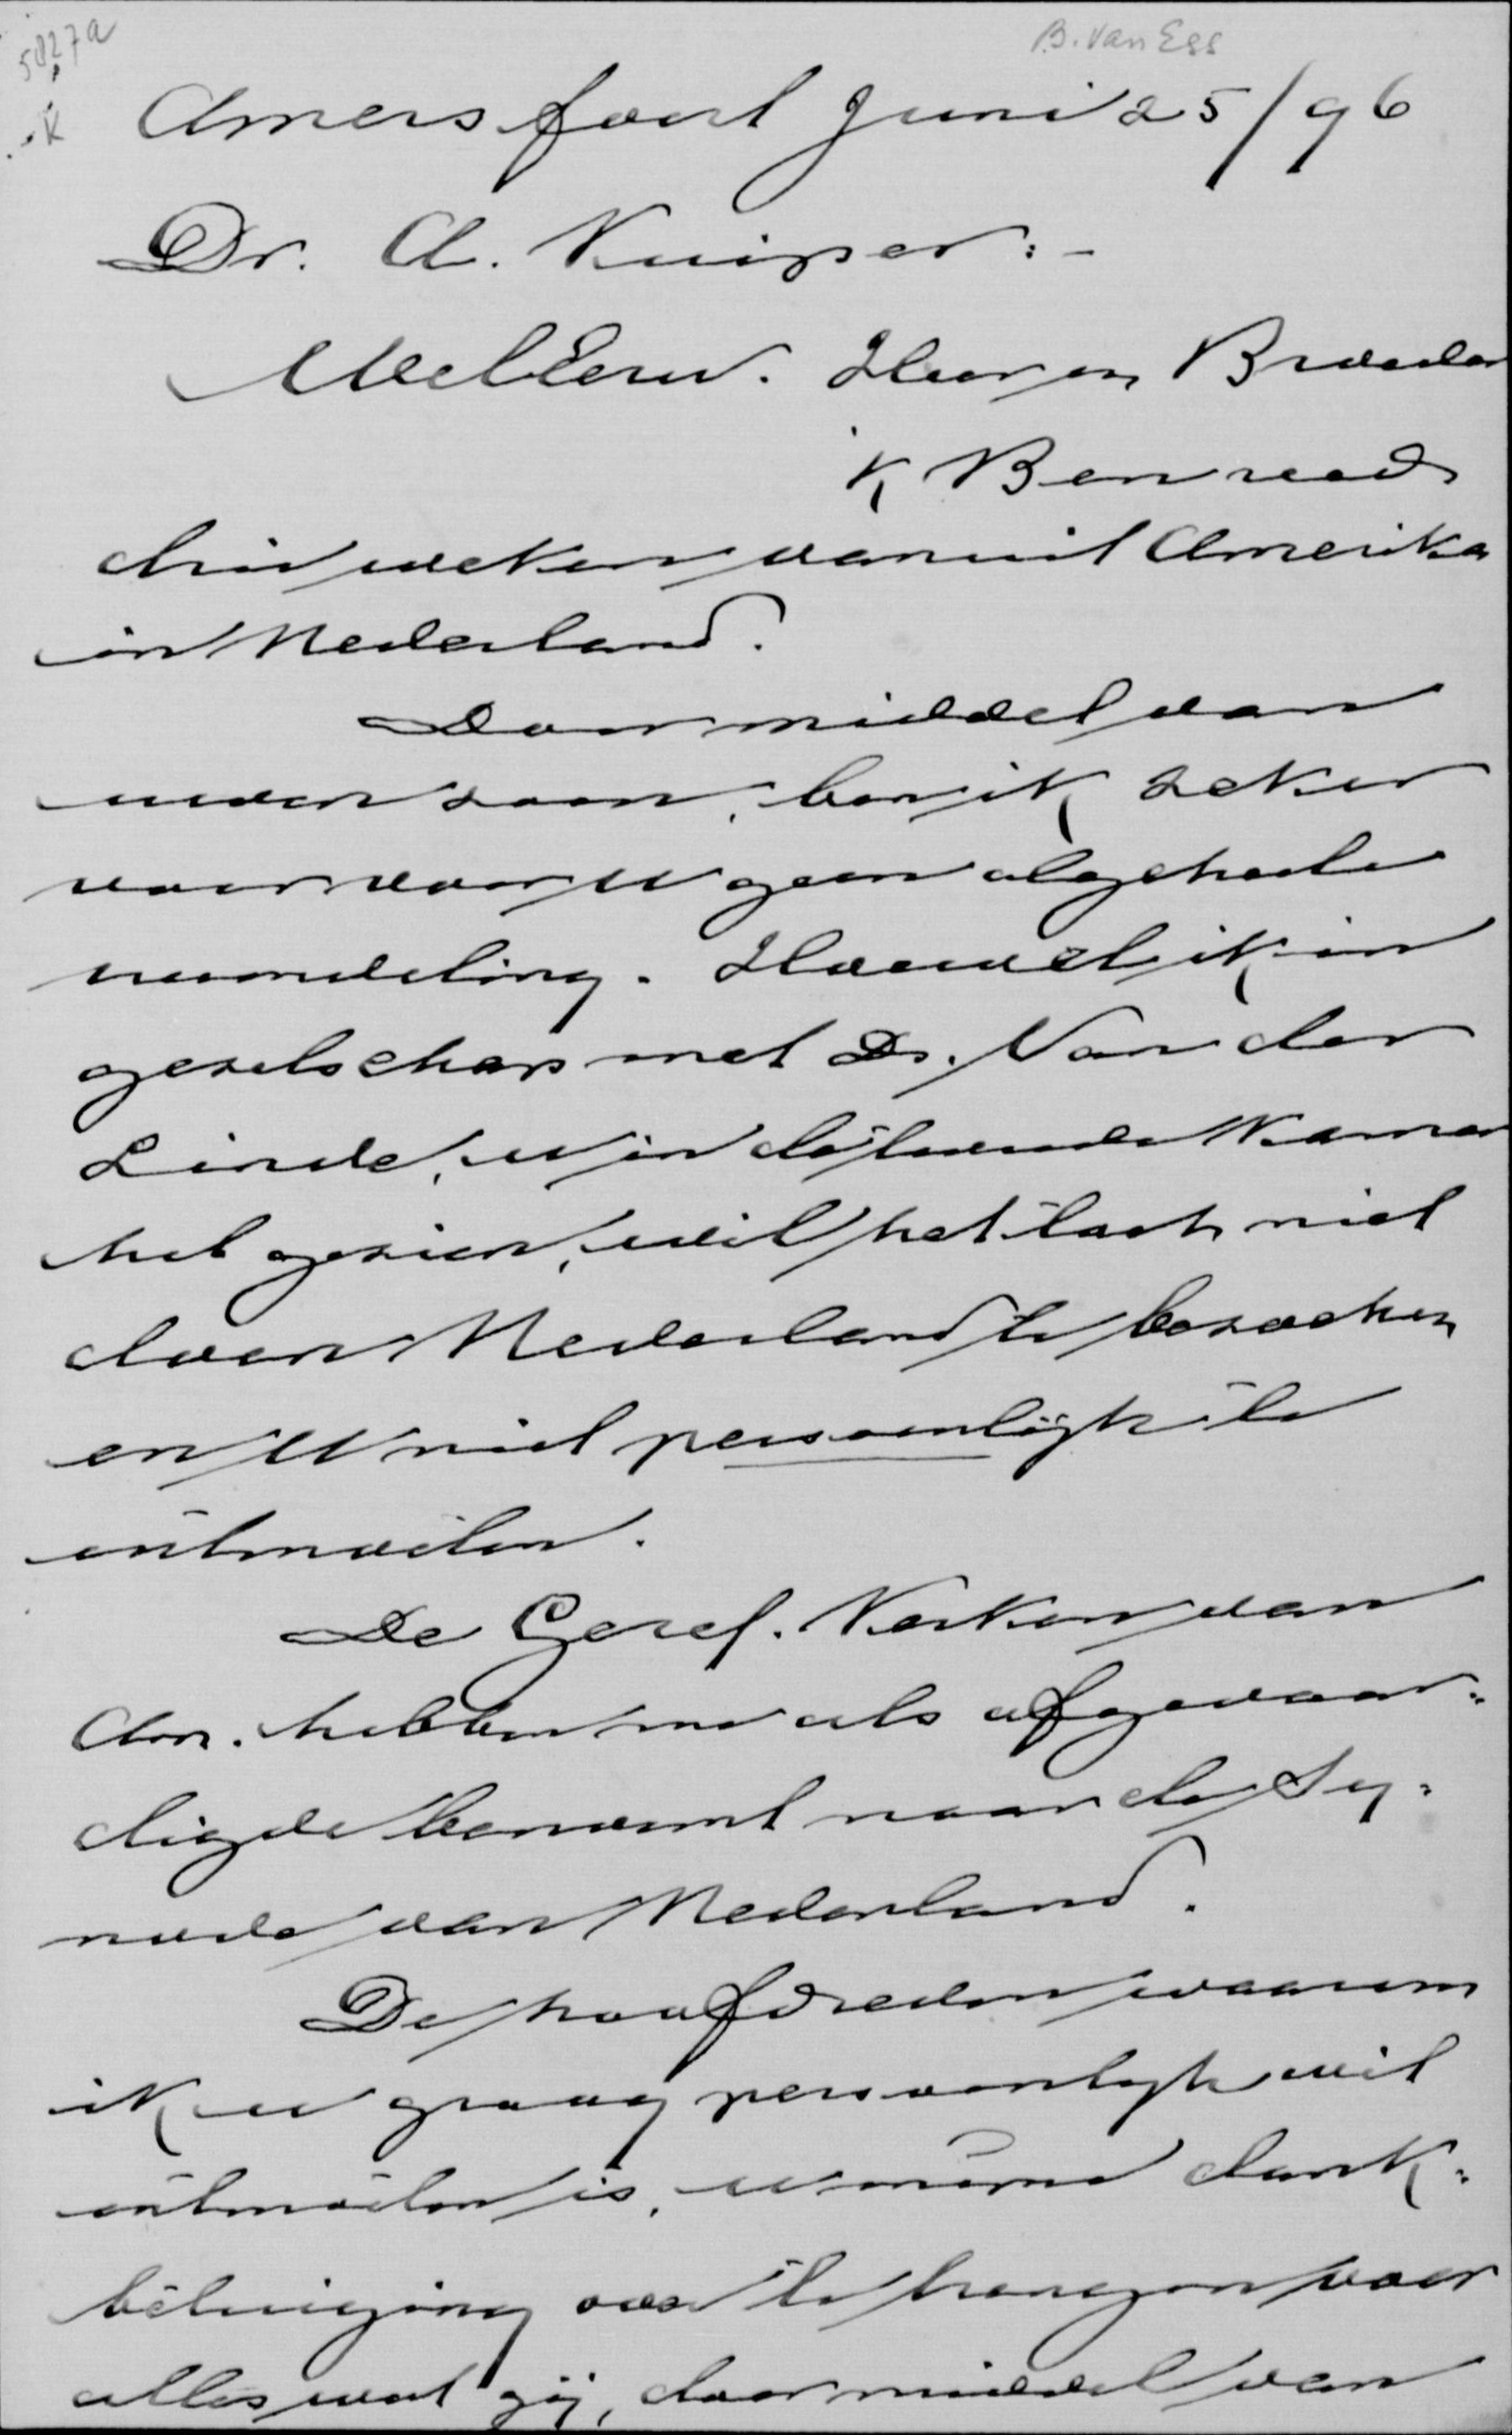 5827a
B. van Ess
K
Amersfoort Juni 25/96
Dr. A. Kuiper:-
WelEerw. Heer en Broeder
'k Ben reeds
drie weken vanuit Amerika
in Nederland.
Door middel van
uwen zoon, ben ik zeker
voor U geen algeheele
vreemdeling. Hoewel ik in
gezelschap met Ds. Van der
Linde, U in de tweede Kamer
heb gezien, wil het toch niet
doen Nederland te bezoeken
en U niet persoonlijk te
ontmoeten.
De Geref. Kerken van
Am. hebben me als afgevaar-
digde benoemt naar de Sy-
node van Nederland.
De hoofdreden waarom
ik u graag persoonlijk wil
ontmoeten is, u mijne dank-
betuiging over te brengen voor
alles wat gij, door middel van